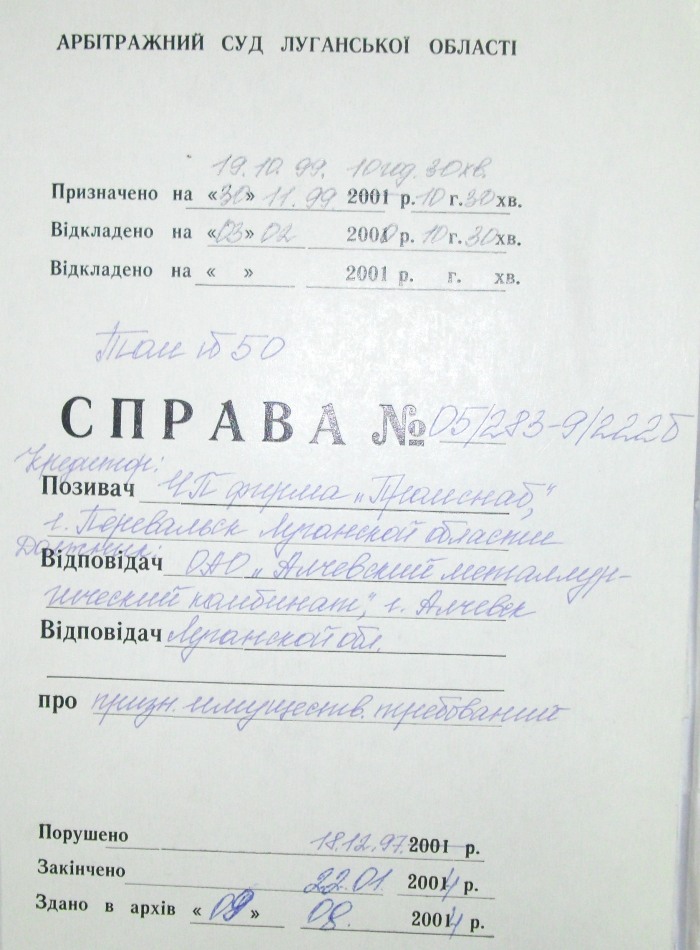 АРБІТРАЖНИЙ СУД ЛУГАНСЬКОЇ ОБЛАСТІ
19.10.99. 10 год. 30 хв.
Призначено на «30» 11.99 2001 р. 10 г. 30 хв.
Відкладено на «03» 02 2000 р. 10 г. 30 хв.
Відкладено на « » 2001 р. г. хв.
Том № 50
СПРАВА № 05/283-9/222б
Кредитор:
Позивач ЧП фирма „Промснаб",
г. Перевальск Луганской области
Должник:
Відповідач ОАО „Алчевский металлур-
гический комбинат", г. Алчевск
Відповідач Луганской обл.
про призн. имуществ. требований
Порушено 18.12.97. 2001 р.
Закінчено 22.01. 2004 р.
Здано в архів «09» 08. 2004 р.